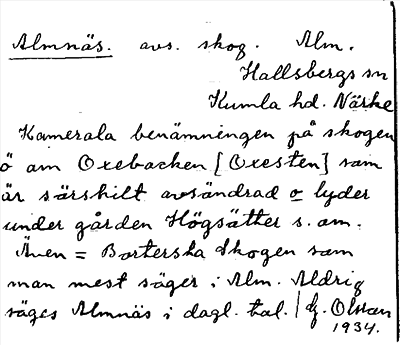 Almnäs. avs. skog. Alm.
Hallsbergs sn
Kumla hd. Närke
Kamerala benämningen på skogen
ö om Oxebacken [Oxesten] som
är särskilt avsöndrad o lyder
under gården Högsätter s. om.
Även = Borterska Skogen som
man mest säger i Alm. Aldrig
säges Almnäs i dagl. tal. / Olsson
1934.